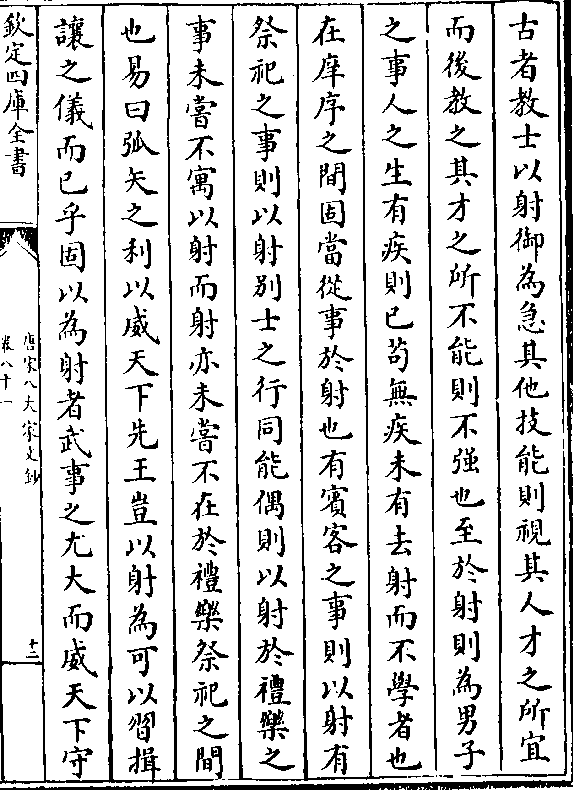 古者教士以射御為急其他技能則視其人才之所宜
而後教之其才之所不能則不强也至於射則為男子
之事人之生有疾則已苟無疾未有去射而不學者也
在庠序之間固當從事於射也有賓客之事則以射有
祭祀之事則以射别士之行同能偶則以射於禮樂之
事未嘗不寓以射而射亦未嘗不在於禮樂祭祀之間
也易曰弧矢之利以威天下先王豈以射為可以習揖
讓之儀而已乎固以為射者武事之尤大而威天下守
欽定四庫全書
唐宋八大家文鈔
卷八十一
十二